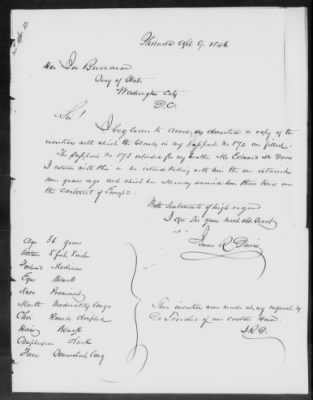 Philada Apl 9. 1846
Hon Jas Buchanan
Secy of State
Washington City
D.C.
Sir!
I beg leave to annex, as directed a copy of the
with which the blanks in my passport No 172 are filled.
The passport No 173 intended for my brother Mr Edward
I return with this as he intends taking with him the one obtained
some years ago and which he already carried him thro Europe on
the continent of Europe.
With sentiments of high regard
I am Sir your most obt Servt
R
Age 36 years
Stature 5 feet inches
Forehead Medium
Eyes Black
Nose Prominent
Mouth Moderately large
Chin Round dimpled
Hair Black
Complexion Dark
Face Somewhat long
This was made at my request by
of our custom House
J.R.D.